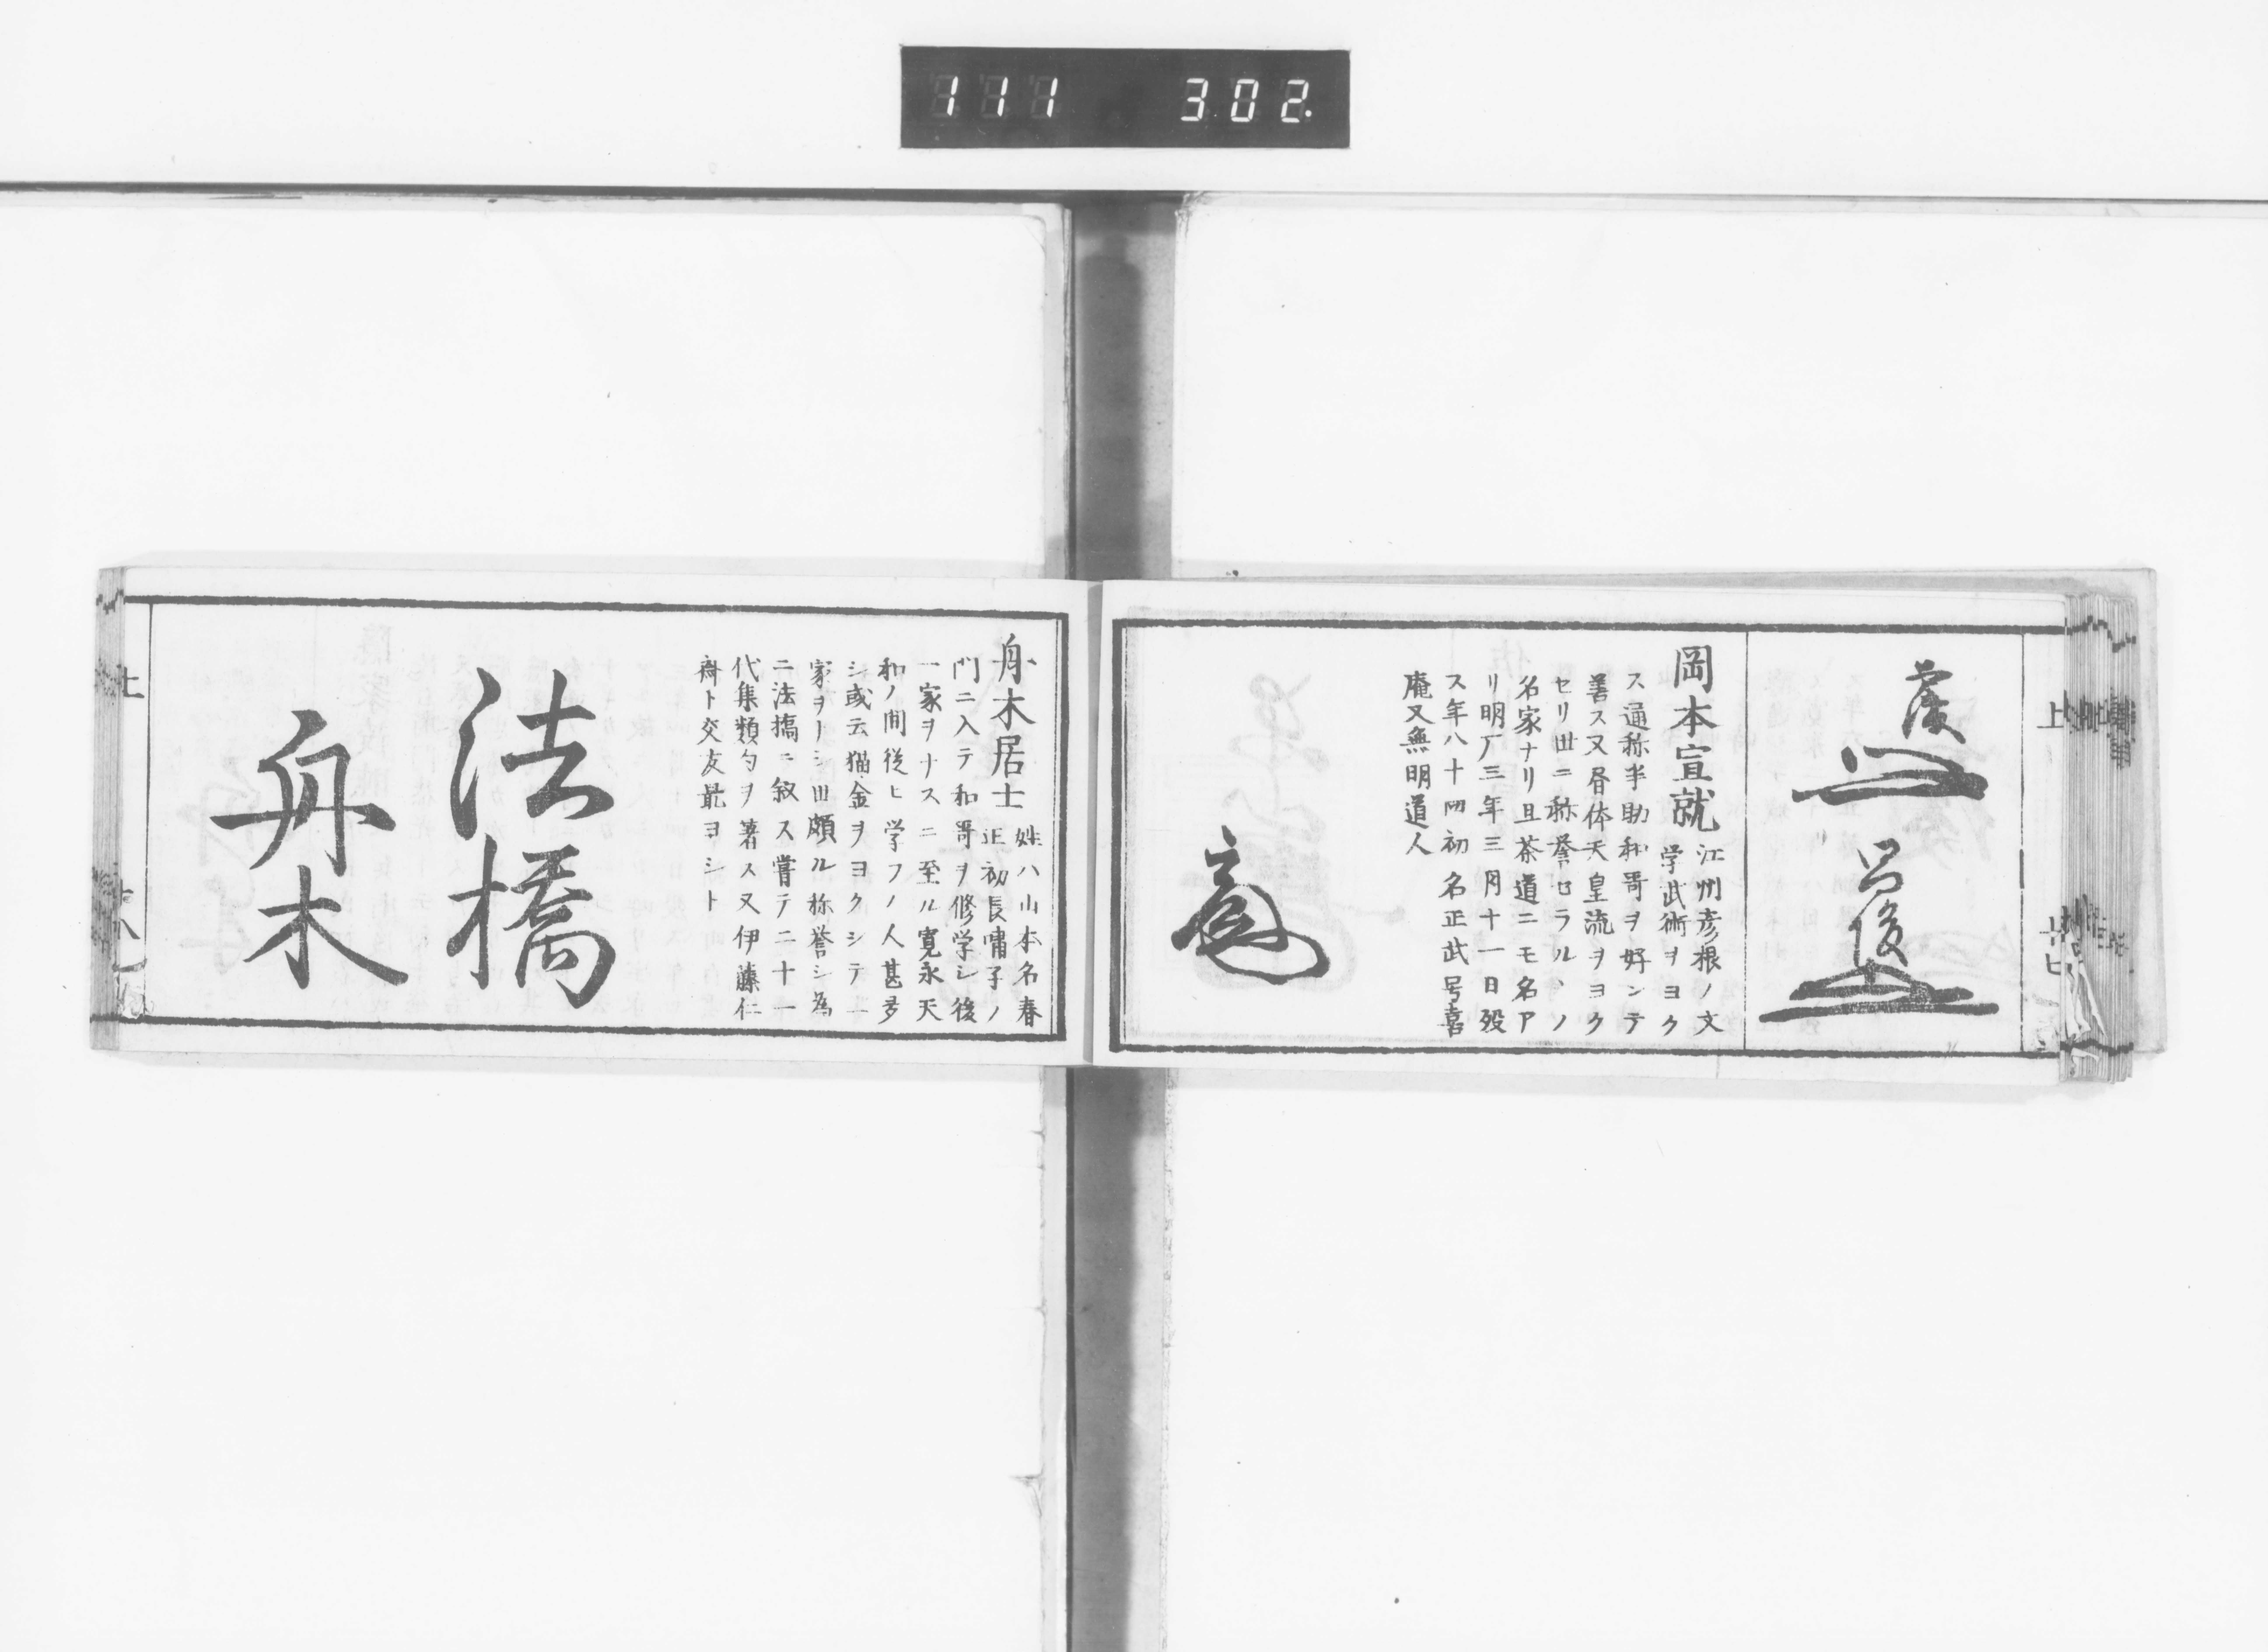 111 302.
上
岡本宣就 江州彦根ノ文
学武術ヲヨク
ス通称半助和哥ヲ好ンテ
善ス又昼体天皇流ヲヨク
セリ世ニ称誉セラルヽノ
名家ナリ且茶道ニモ名ア
リ明厂三年三月十一日歿
ス年八十四初名正武号喜
庵又無明道人
舟木居士 姓ハ山本名春
正初長嘯子ノ
門ニ入テ和哥ヲ修学シ後
一家ヲナスニ至ル寛永天
和ノ間従ヒ学フノ人甚多
シ或云猫金ヲヨクシテ一
家ヲトシ世頗ル称誉シ為
ニ法橋ニ叙ス嘗テ二十一
代集類句ヲ著ス又伊藤仁
斎ト交友最ヨシト
法橋
舟木
上